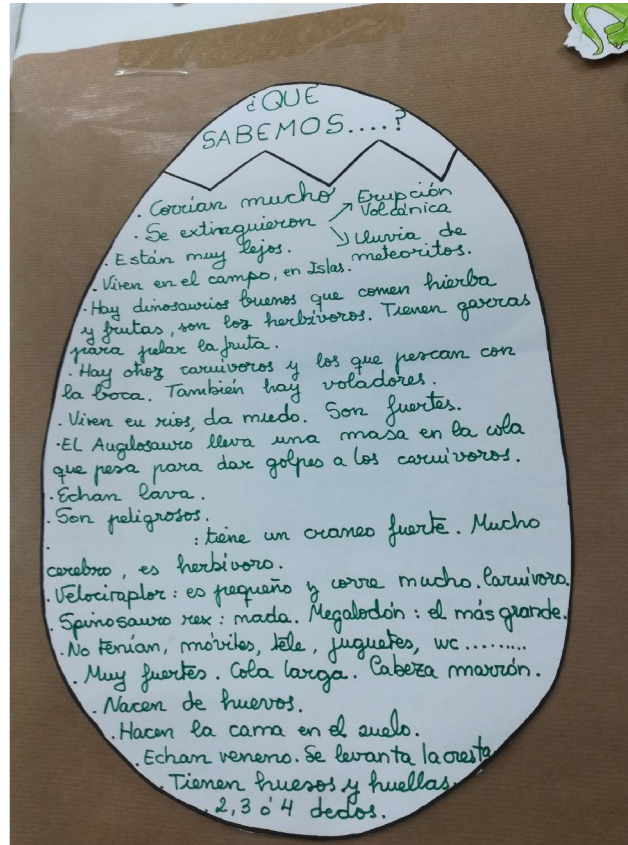 ¿QUE
SABEMOS....?
. Corrían mucho
. Se extinguieron ↗ Erupción Volcánica
↘ lluvia de meteoritos.
. Están muy lejos.
. Viven en el campo, en Islas.
. Hay dinosaurios buenos que comen hierba
y frutas, son los herbívoros. Tienen garras
para pelar la fruta.
. Hay otros carnívoros y los que pescan con
la boca. También hay voladores.
. Viven en rios, da miedo. Son fuertes.
. EL Anquilosauro lleva una masa en la cola
que pesa para dar golpes a los carnívoros.
. Echan lava.
. Son peligrosos.
. : tiene un craneo fuerte. Mucho
cerebro, es herbívoro.
. Velociraptor: es pequeño y corre mucho. Carnívoro.
. Spinosauro rex: nada. Megalodón: el más grande.
. No tenían, móviles, tele, juguetes, wc.........
. Muy fuertes. Cola larga. Cabeza marrón.
. Nacen de huevos.
. Hacen la cama en el suelo.
. Echan veneno. Se levanta la cresta
. Tienen huesos y huellas
. 2, 3 ó 4 dedos.